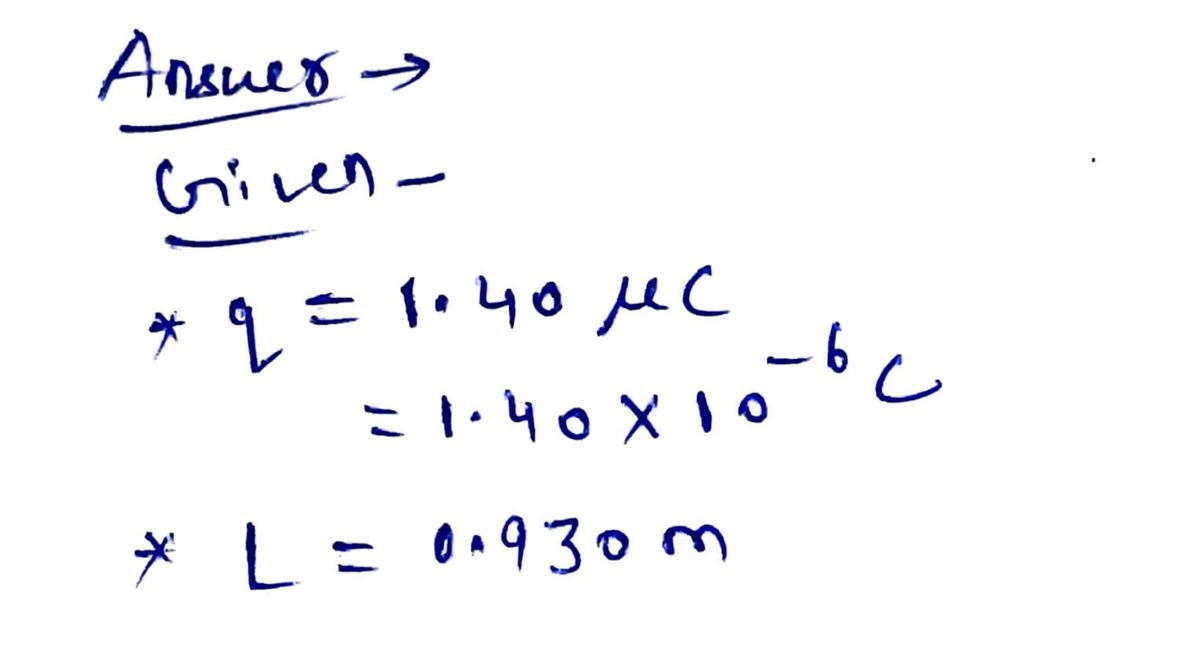 Answer →
Given -
* q = 1.40 μC
= 1.40 × 10⁻⁶ C
* L = 0.930 m